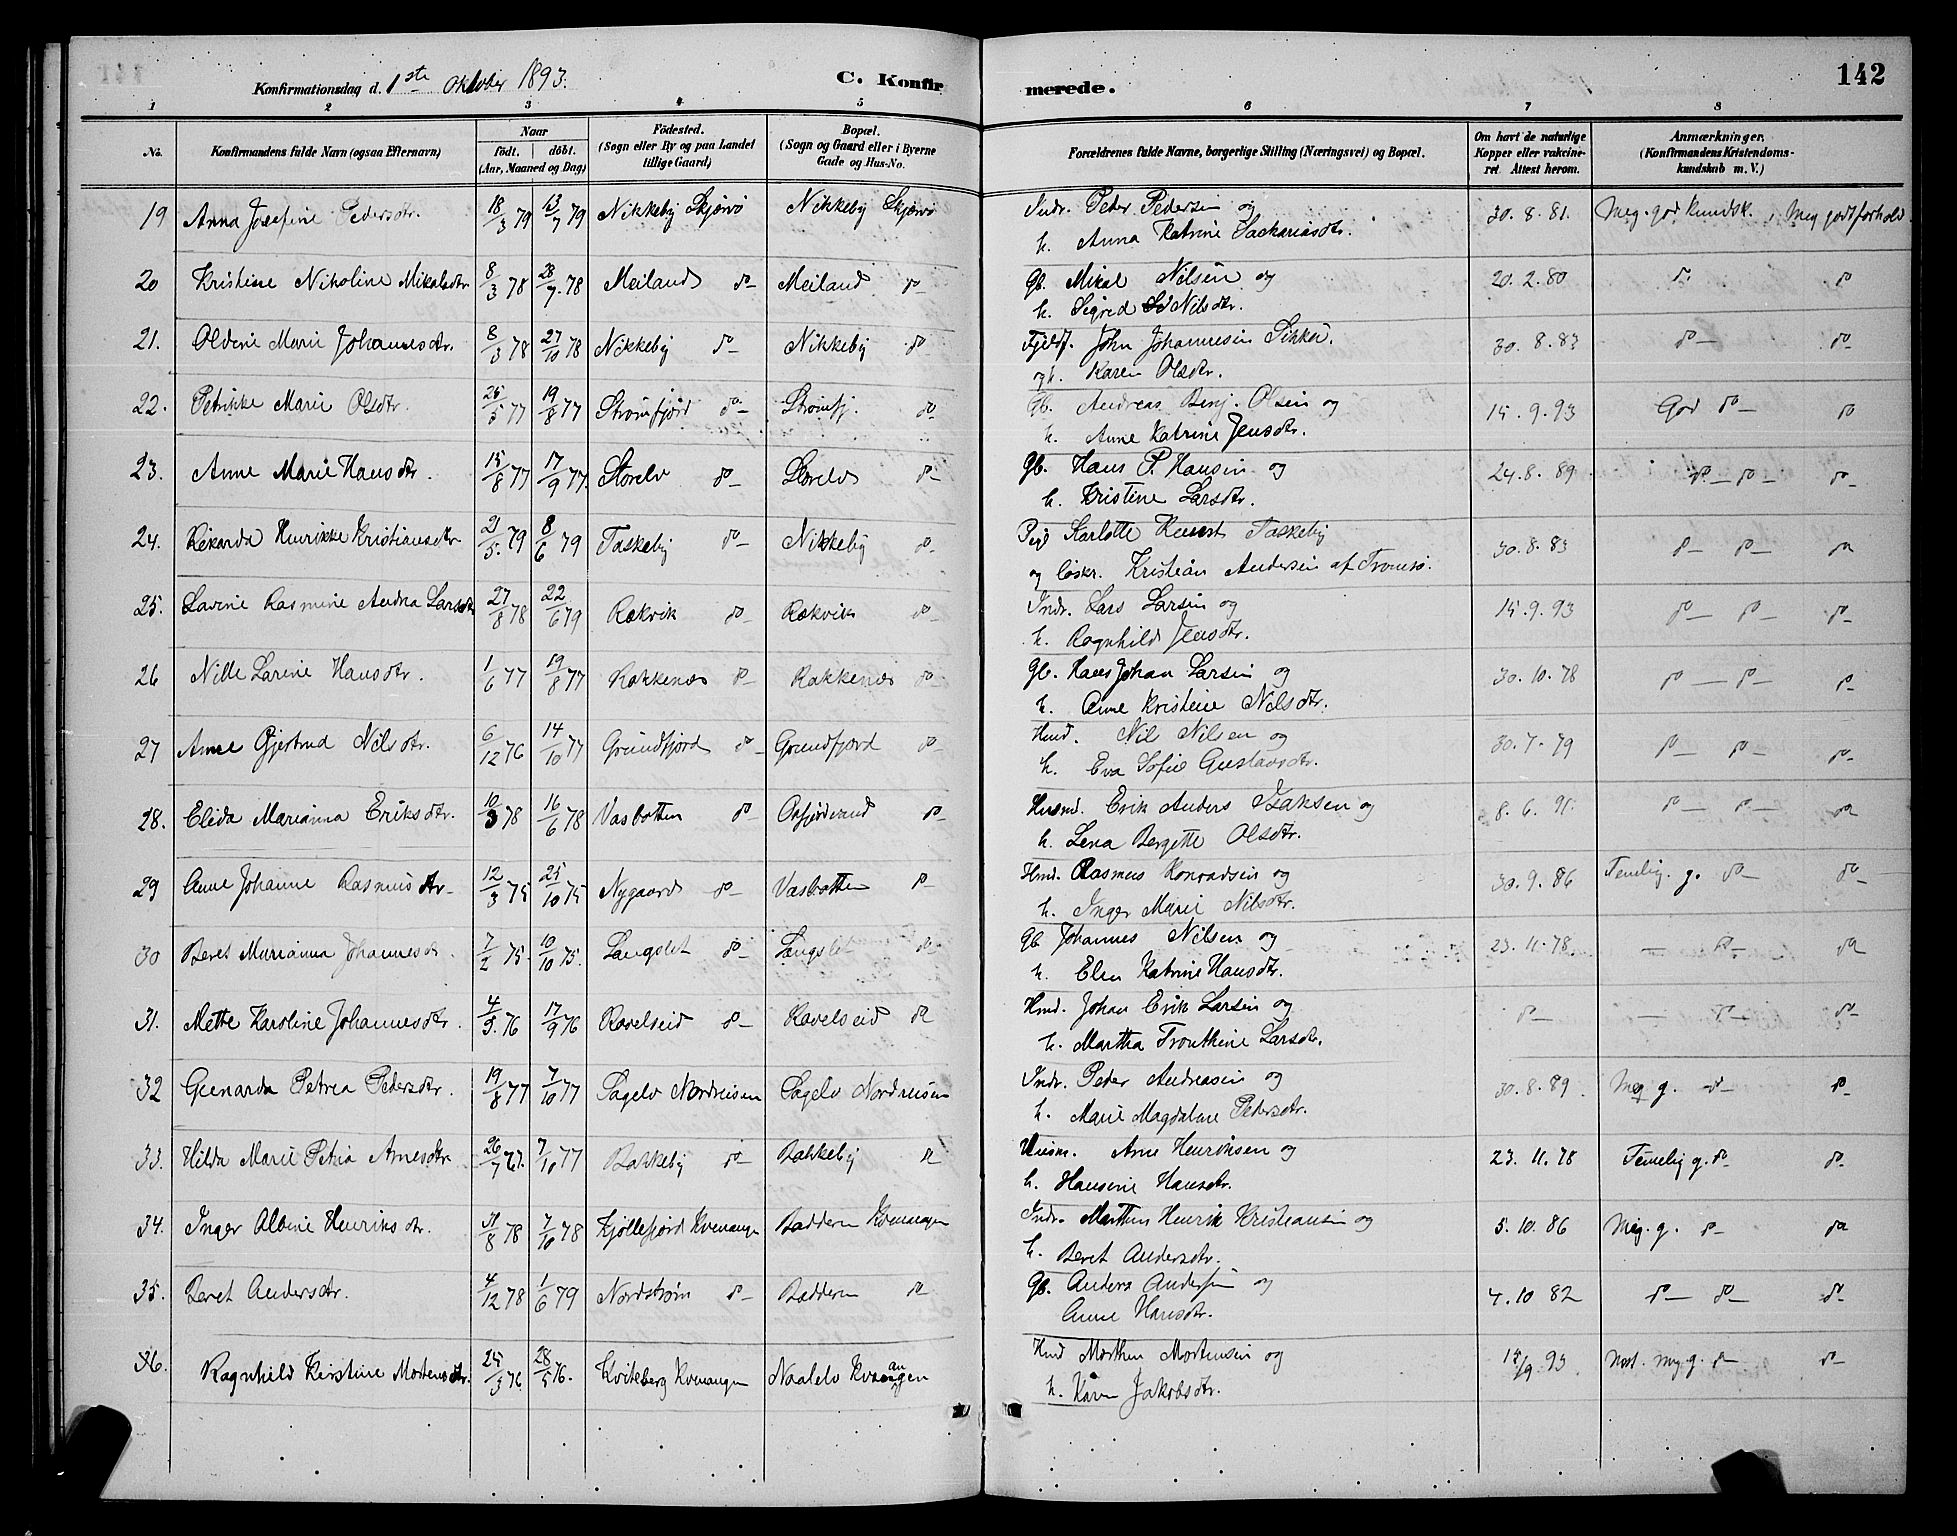 Konfirmationsdag d. 1ste Oktober 1893. C. Konfirmerede. 142
1 2 3 4 5 6 7 8
No. Konfirmandens fulde Navn (ogsaa Efternavn) Naar födt. döbt. (Aar, Maaned og Dag) Födested. (Sogn eller By og paa Landet tillige Gaard) Bopæl. (Sogn og Gaard eller i Byerne Gade og Hus-No. Forældrenes fulde Navne, borgerlige Stilling (Næringsvei) og Bopæl. Om havt de naturlige Kopper eller vakcineret. Attest herom. Anmærkninger. (Konfirmandens Kristendomskundskab m. V.)
19 Anna Josefine Pedersdtr. 18/3 79 13/7 79 Nikkeby Skjervö Nikkeby Skjervö Indr. Peder Pedersen og 30.8.81. Meg. god kundsk., Meg godt forhold.
h. Anna Katrine Sackariasdtr.
20 Kristine Nikoline Mikalsdtr 8/3 78 28/7 78 Meiland do- Meiland do- Gb. Mikal Nilsen og 20.2.80 do do
h. Sigrid Nilsdtr.
21. Oldine Marie Johannesdtr. 8/3 78 27/10 78 Nikkeby do- Nikkeby do Fjeldf. John Johannesen Sikker 30.8.83 do- do-
og h. Karen Olsdtr.
22. Petrikke Marie Olsdtr. 25/5 77 19/8 77 Strömfjord do- Strömfj. do- Gb. Andreas Benj. Olsen og 15.9.93 God do- do
h. Anne Katrine Jensdtr.
23. Anne Marie Hansdtr. 15/8 77 17/9 77 Storelv do- Storelv do- Gb. Hans P. Hansen og 24.8.89 do- do- do-
h. Kristine Larsdtr.
24. Rikarda Henrikke Kristiansdtr 21/5 79 8/6 79 Taskeby do- Nikkeby do- Pige Karlotte Taskeby 30.8.83 do- do- do
og löskr. Kristian Andersen af Tromsö.
25. Lavine Rasmine Andrea Larsdtr 27/8 78 22/6 79 Rækvik do- Rækvik do- Indr. Lars Larsen og 15.9.93 do- do- do-
h. Ragnhild Jensdtr.
26 Nille Larine Hansdtr. 1/6 77 19/8 77 Rakkenæs do- Rakkenæs do- Gb. Hans Johan Larsen og 30.10.78 do- do- do-
h. Anne Kristine Nilsdtr.
27 Anne Gjertrud Nilsdtr. 6/12 76 14/10 77 Grundfjord do- Grundfjord do- Hmd. Nils Nilsen og 30.7.79 do- do- do-
h. Eva Sofie Gustavsdtr.
28. Elida Marianna Eriksdtr. 10/3 78 16/6 78 Vasbotten do- Oxfjordvand do- Husmd. Erik Anders Isaksen og 8.6.91. do- do- do
h. Lena Bergette Olsdtr.
29 Anne Johanne Rasmusdtr- 12/3 75 25/10 75 Nygaard do- Vasbotten do- Hmd. Rasmus Konradsen og 30.9.86 Temlig. g. do- do-
h. Inger Marie Nilsdtr.
30 Beret Marianna Johannesdtr. 7/2 75 10/10 75. Langslet do- Langslet do- Gb Johannes Nilsen og 23.11.78. - do- do
h. Elen Katrine Hansdtr.
31. Mette Karoline Johannesdtr. 4/5. 76 17/9 76 Ravelseid do- Ravelseid do Hmd. Johan Erik Larsen og do- - do- do-
h. Martha Tronthine Larsdtr.
32 Gunarda Petrea Pedersdtr. 19/8 77 7/10 77 Sagelv Nordreisen Sagelv Nordreisen Indr. Peder Andreasen og 30.8.89. Meg g. do- do-
h. Marie Magdalene Pedersdtr.
33. Hilda Marie Petria Arnesdtr 26/7 7/10 77 Bakkeby do- Bakkeby do Arne Henriksen og 23.11.78 Temelig g. do- do-
h. Hansine Hansdtr.
34. Inger Albine Henriksdtr. 31/8 78 7/10 78 Kjöllefjord Kvenangen Badderen Kvenangen Indr. Marthin Henrik Kristiansen og 5.10.86 Meg. g. do- do
h. Beret Andersdtr.
35. Beret Andersdtr. 4/12 78 1/6 79 Nordström do- Badderen do Gb. Anders Andersen og 4.10 82 do- do- do-
Anne Hansdtr.
36. Ragnhild Kirstine Mortensdtr. 25/3 76 28/5 76. Kviteberg Kvenangen Naalelv Kvænangen Hmd Morthen Mortensen og 15/9. 93 Not. meg g. do- do-
h. Karen Jakobsdtr.